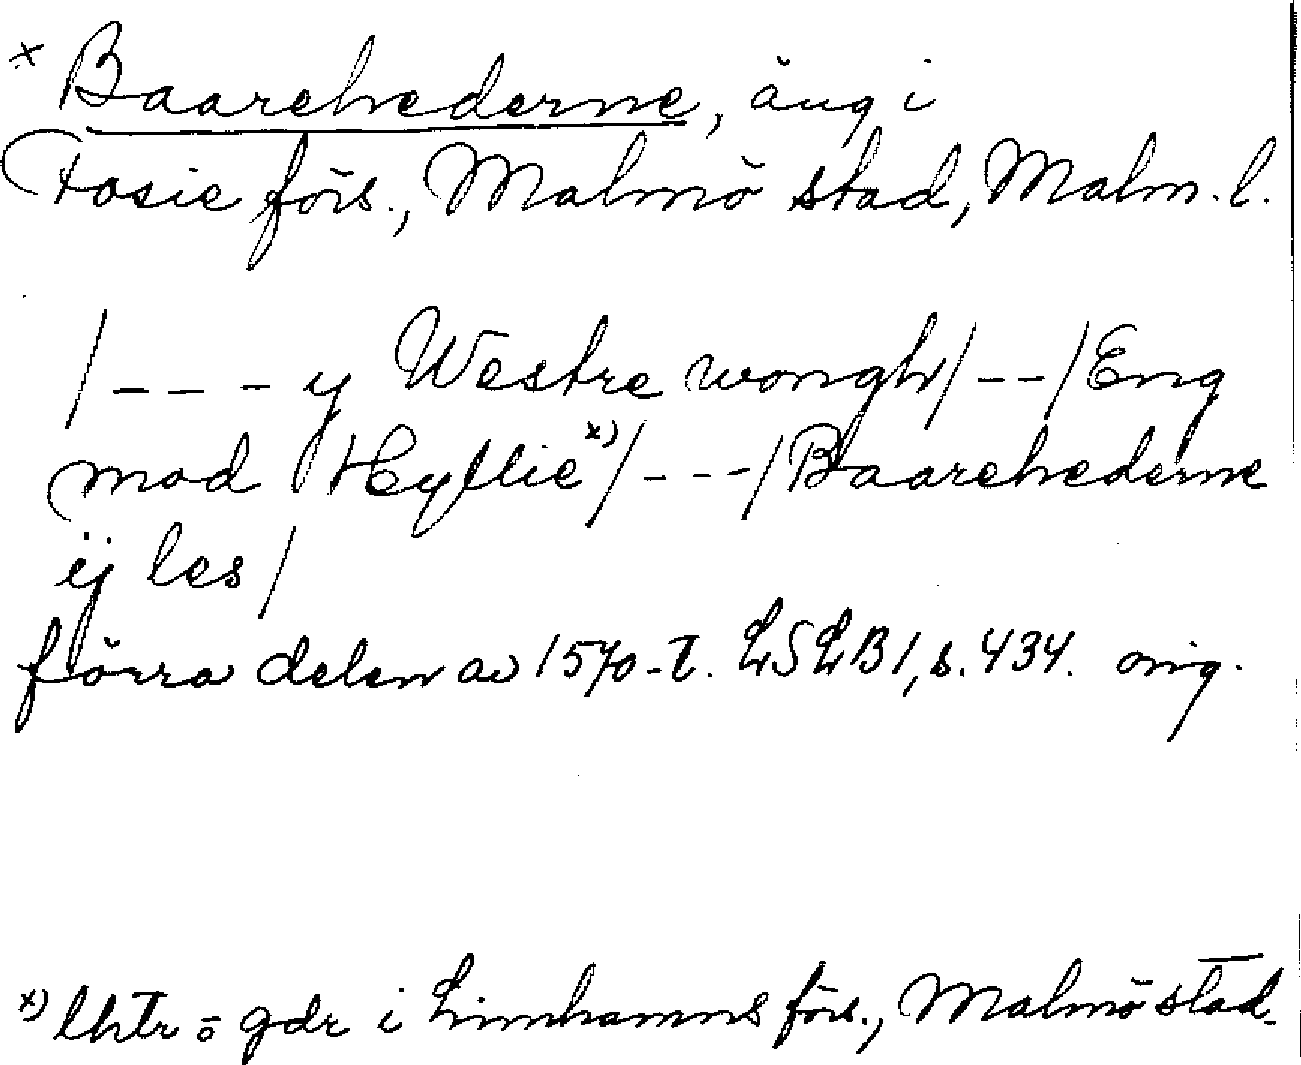 * Baarehederne, äng i
Fosie förs., Malmö stad, Malm. l.
/ - - - y Westre wongh / - - / Eng
mod Hyllie x) / - - - / Baarehederne
ij les /
förra delen av 1570-t. LSLB 1, s. 434. orig.
x) lhtr o gdr i Limhamns förs., Malmö stad.